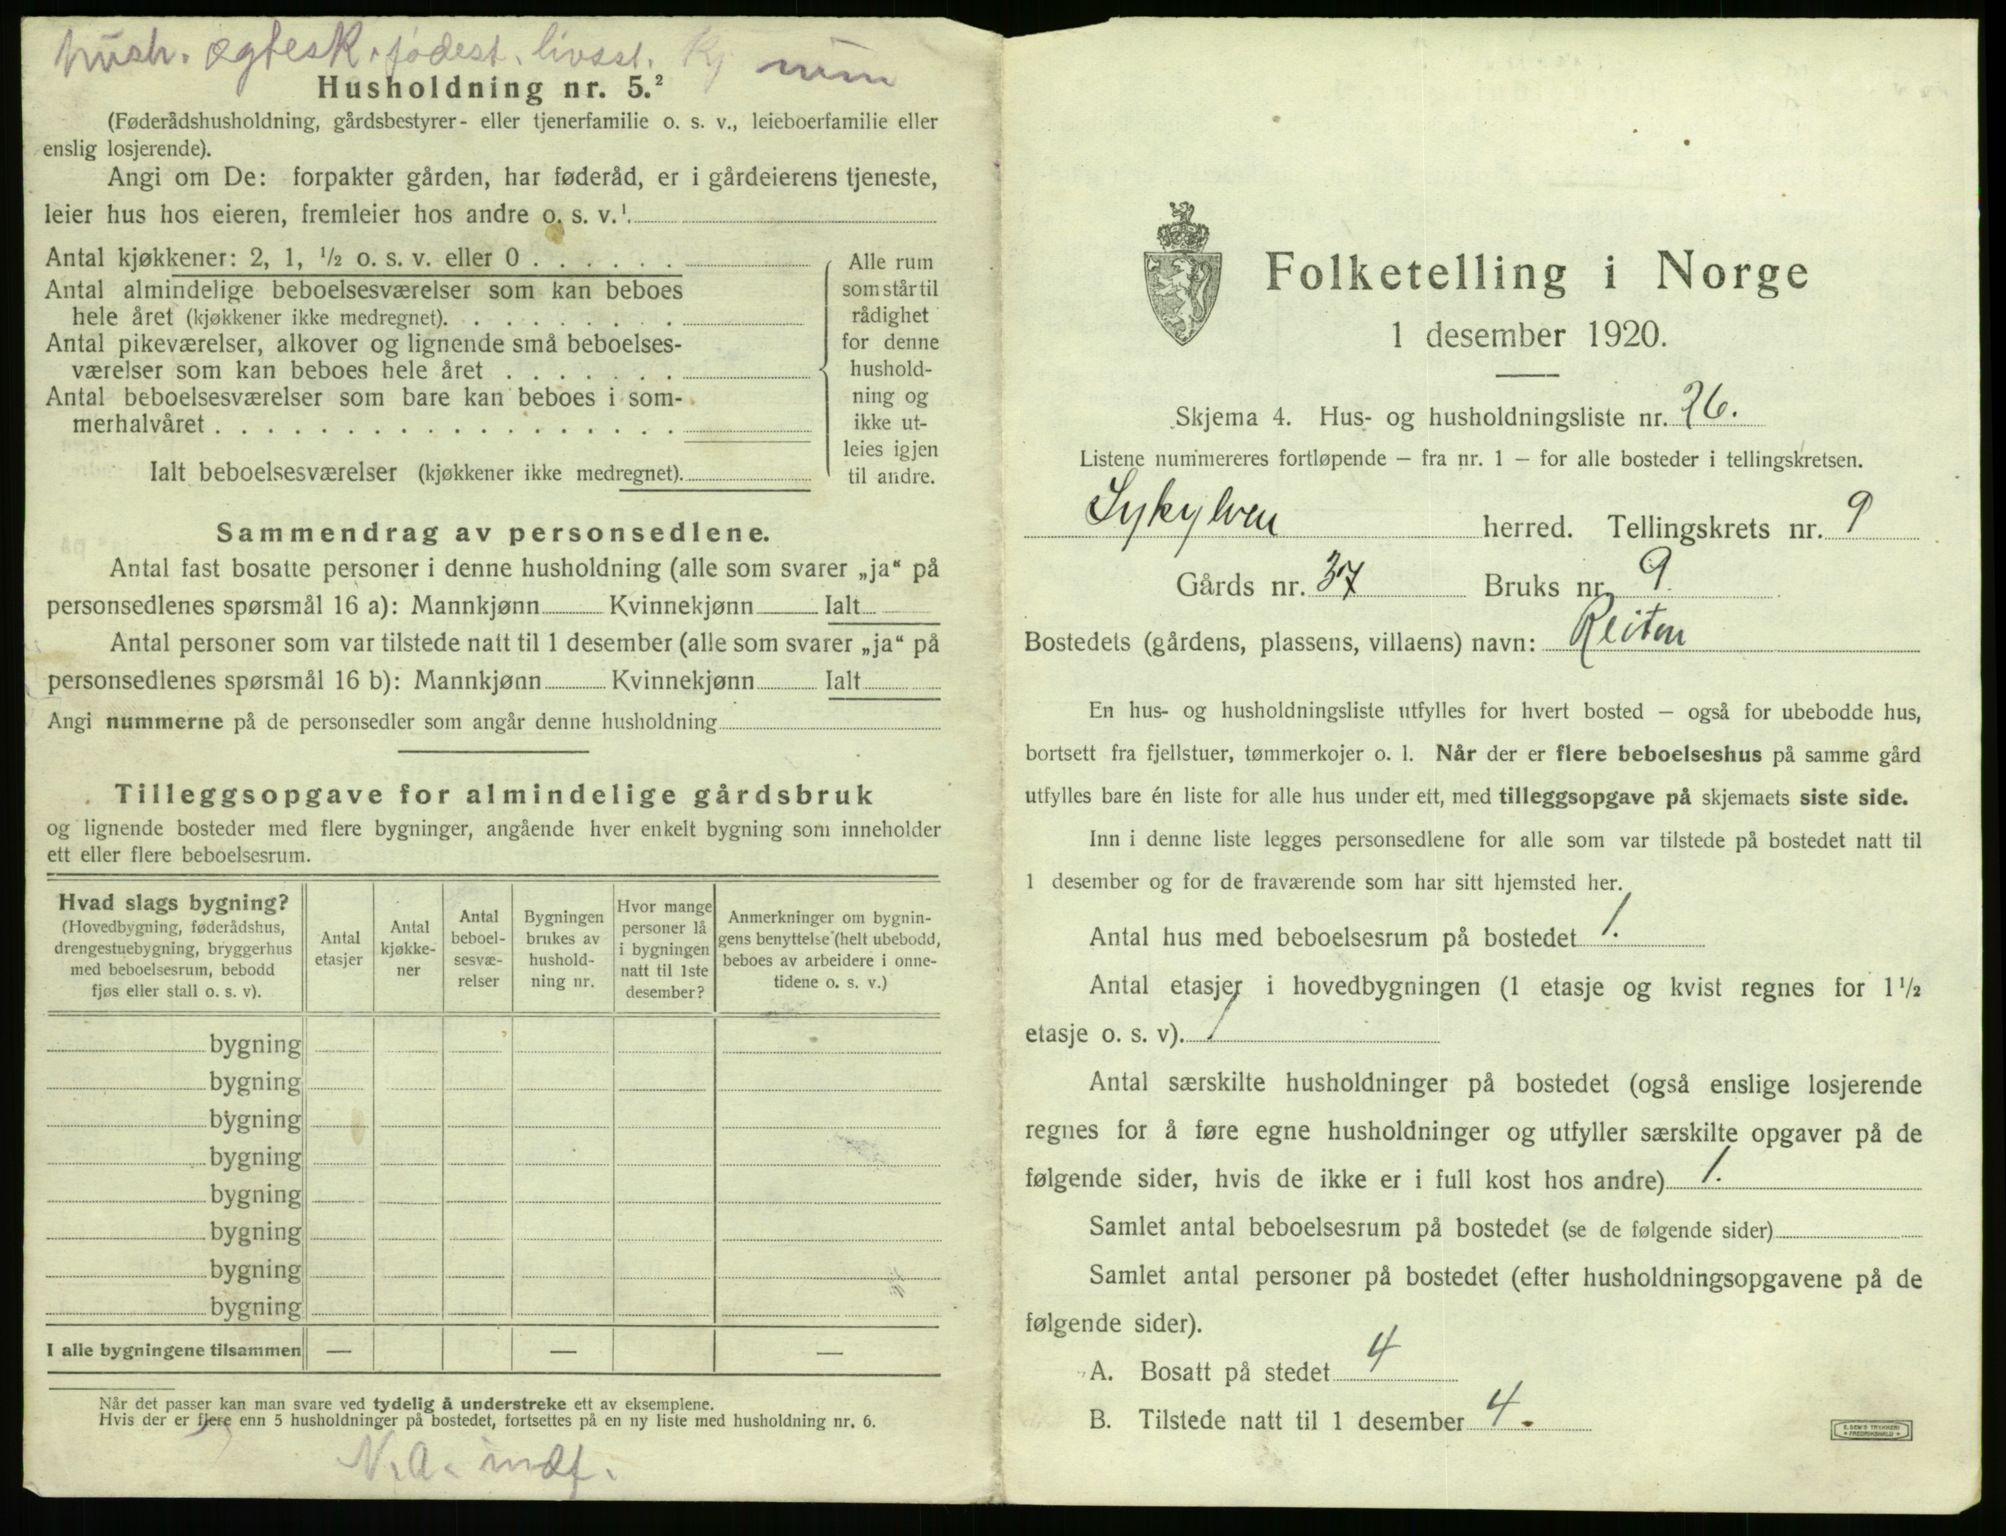 hush. ægtesk. fødest. livsst. Kj num
Husholdning nr. 5.²
(Føderådshusholdning, gårdsbestyrer- eller tjenerfamilie o. s. v., leieboerfamilie eller
enslig losjerende).
Angi om De: forpakter gården, har føderåd, er i gårdeierens tjeneste,
leier hus hos eieren, fremleier hos andre o. s. v.¹
Antal kjøkkener: 2, 1, ½ o. s. v. eller 0 . . . . . .
Antal almindelige beboelsesværelser som kan beboes
hele året (kjøkkener ikke medregnet). . . . . . . . .
Antal pikeværelser, alkover og lignende små beboelses-
værelser som kan beboes hele året . . . . . . .
Antal beboelsesværelser som bare kan beboes i som-
merhalvåret . . . . . . . . . . . . . . . . . .
Ialt beboelsesværelser (kjøkkener ikke medregnet).
Alle rum
som står til
rådighet
for denne
hushold-
ning og
ikke ut-
leies igjen
til andre.
Sammendrag av personsedlene.
Antal fast bosatte personer i denne husholdning (alle som svarer „ja“ på
personsedlenes spørsmål 16 a): Mannkjønn Kvinnekjønn Ialt
Antal personer som var tilstede natt til 1 desember (alle som svarer „ja“ på
personsedlenes spørsmål 16 b): Mannkjønn Kvinnekjønn Ialt
Angi nummerne på de personsedler som angår denne husholdning
Tilleggsopgave for almindelige gårdsbruk
og lignende bosteder med flere bygninger, angående hver enkelt bygning som inneholder
ett eller flere beboelsesrum.
Hvad slags bygning?
(Hovedbygning, føderådshus,
drengestuebygning, bryggerhus
med beboelsesrum, bebodd
fjøs eller stall o. s. v).
Antal
etasjer
Antal
kjøkke-
ner
Antal
beboel-
sesvæ-
relser
Bygningen
brukes av
hushold-
ning nr.
Hvor mange
personer lå
i bygningen
natt til 1ste
desember?
Anmerkninger om bygnin-
gens benyttelse (helt ubebodd,
beboes av arbeidere i onne-
tidene o. s. v.)
bygning
bygning
bygning
bygning
bygning
bygning
bygning
bygning
I alle bygningene tilsammen — — —
Når det passer kan man svare ved tydelig å understreke ett av eksemplene.
Hvis der er flere enn 5 husholdninger på bostedet, fortsettes på en ny liste med husholdning nr. 6.
N. A. indf.
Folketelling i Norge
1 desember 1920.
Skjema 4. Hus- og husholdningsliste nr. 26.
Listene nummereres fortløpende – fra nr. 1 – for alle bosteder i tellingskretsen.
Sykylven herred. Tellingskrets nr. 9
Gårds nr. 37 Bruks nr. 9.
Bostedets (gårdens, plassens, villaens) navn: Reiten
En hus- og husholdningsliste utfylles for hvert bosted – også for ubebodde hus,
bortsett fra fjellstuer, tømmerkojer o. l. Når der er flere beboelseshus på samme gård
utfylles bare én liste for alle hus under ett, med tilleggsopgave på skjemaets siste side.
Inn i denne liste legges personsedlene for alle som var tilstede på bostedet natt til
1 desember og for de fraværende som har sitt hjemsted her.
Antal hus med beboelsesrum på bostedet 1.
Antal etasjer i hovedbygningen (1 etasje og kvist regnes for 1½
etasje o. s. v). 1
Antal særskilte husholdninger på bostedet (også enslige losjerende
regnes for å føre egne husholdninger og utfyller særskilte opgaver på de
følgende sider, hvis de ikke er i full kost hos andre) 1.
Samlet antal beboelsesrum på bostedet (se de følgende sider)
Samlet antal personer på bostedet (efter husholdningsopgavene på de
følgende sider).
A. Bosatt på stedet 4
B. Tilstede natt til 1 desember 4.
E. SEM'S TRYKKERI
FREDRIKSHALD